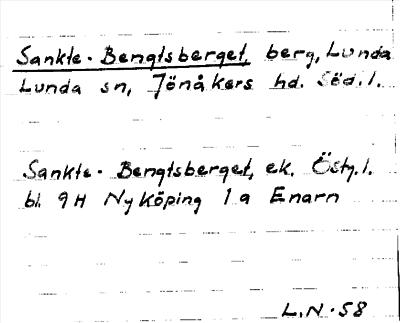 Sankte-Bengtsberget, berg, Lunda
Lunda sn, Jönåkers hd. Söd.l.
Sankte-Bengtsberget, ek. Östg.l.
bl. 9H Nyköping 1a Enarn
L.N.58